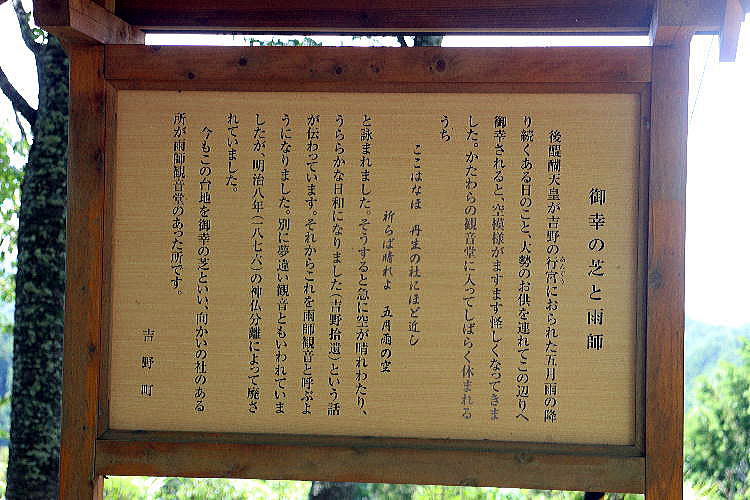 御幸の芝と雨師
後醍醐天皇が吉野の行宮におられた五月雨の降
り続くある日のこと、大勢のお供を連れてこの辺りへ
御幸されると、空模様がますます怪しくなってきま
した。かたわらの観音堂に入ってしばらく休まれる
うち
ここはなほ 丹生の社にほど近し
祈らば晴れよ 五月雨の空
と詠まれました。そうすると急に空が晴れわたり、
うららかな日和になりました(吉野拾遺)という話
が伝わっています。それからこれを雨師観音と呼ぶよ
うになりました。別に夢違い観音ともいわれていま
したが、明治八年(一八七六)の神仏分離によって廃さ
れていました。
今もこの台地を御幸の芝といい、向かいの社のある
所が雨師観音堂のあった所です。
吉野町